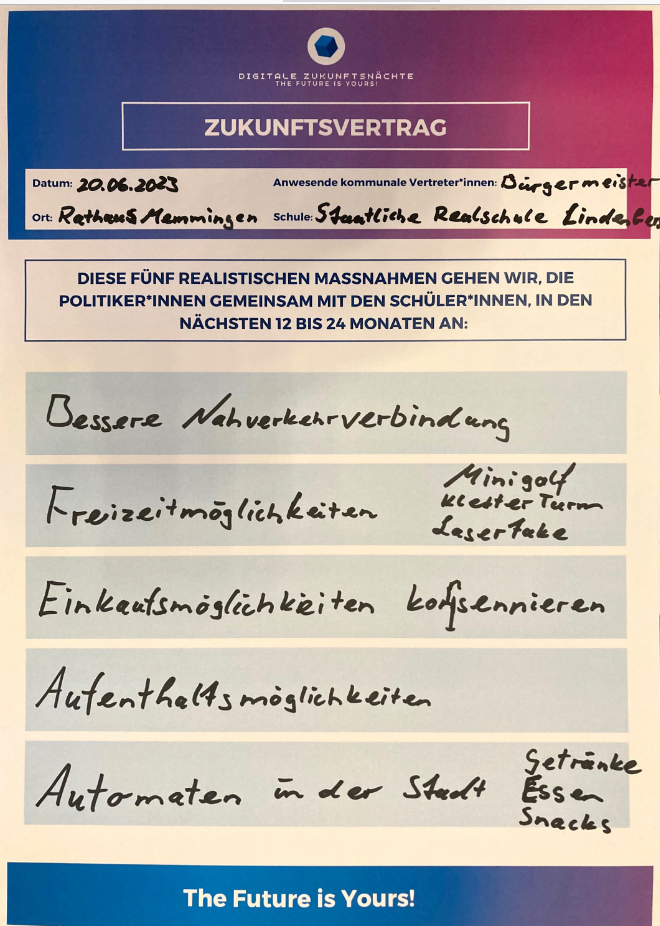 DIGITALE ZUKUNFTSNÄCHTE
THE FUTURE IS YOURS!
ZUKUNFTSVERTRAG
Datum: 20.06.2023 Anwesende kommunale Vertreter*innen: Bürgermeister
Ort: Rathaus Memmingen Schule: Staatliche Realschule Lindenberg
DIESE FÜNF REALISTISCHEN MASSNAHMEN GEHEN WIR, DIE
POLITIKER*INNEN GEMEINSAM MIT DEN SCHÜLER*INNEN, IN DEN
NÄCHSTEN 12 BIS 24 MONATEN AN:
Bessere Nahverkehrverbindung
Freizeitmöglichkeiten Minigolf
Kletter Turm
Lasertake
Einkaufsmöglichkeiten
Aufenthaltsmöglichkeiten
Automaten in der Stadt Getränke
Essen
Snacks
The Future is Yours!